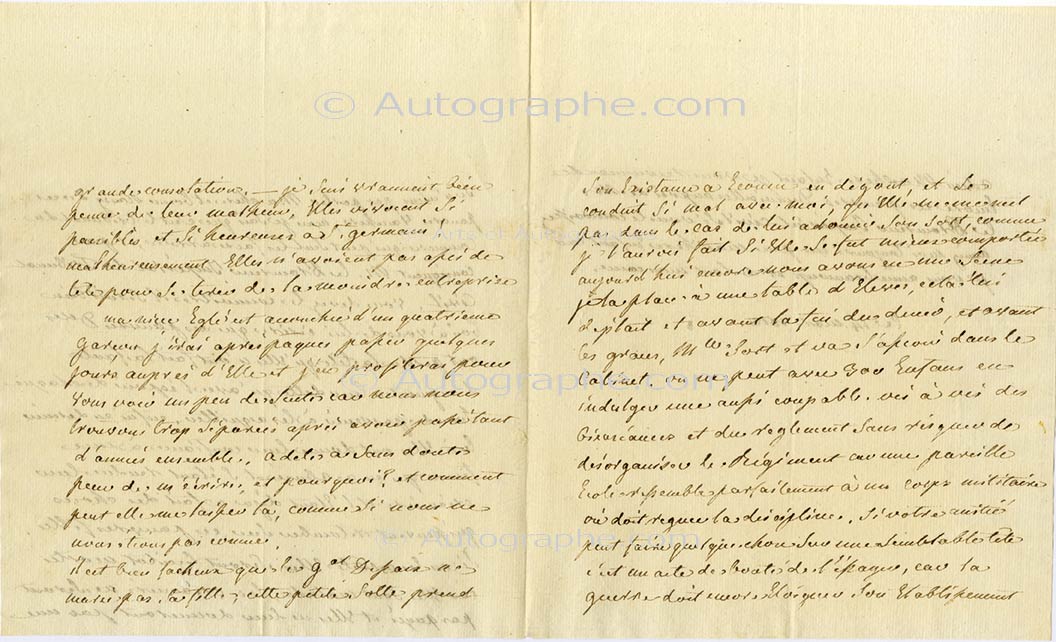 grande consolation. — je suis vraiment bien
peinée de leur malheur, Elles vivoient si
paisibles et si heureuses à St germain
malheureusement Elles n'avoient pas assés de
tête pour se tirer de la moindre entreprise
ma nièce Eglé est accouchée d'un quatrieme
garcon j'irai après paques passer quelques
jours auprès d'Elle et j'en profiterai pour
vous voir un peu de suite car nous nous
trouvons trop séparées après avoir passé tant
d'années ensemble, adele a sans doute
peur de m'écrire, et pourquoi? et comment
peut elle me laisser là, comme si nous ne
nous étions pas connues.
il est bien facheux que le gal ne
marie pas sa fille, cette petite sotte prend
son Existance à Ecouen en dégout, et se
conduit si mal avec moi, qu'Elle ne me met
pas dans le cas de lui adoucir son sort, comme
je l'aurois fait si Elle se fut mieux comportée
aujourd'hui encore nous avons eu une scène
je la place à une table d'Eleves, cela lui
déplait et avant la fin du diner, et avant
les graces, Mlle sort et va s'asseoir dans le
Cabinet, on ne peut avec 300 Enfans en
indulger une aussi coupable vis à vis des
bienséances et du reglement sans risquer de
désorganiser le Régiment car une pareille
Ecole ressemble parfaitement à un corps militaire
où doit regner la discipline. Si votre amitié
peut faire quelque chose sur une semblable tête
c'est un acte de bonté de l'essayer, car la
guerre doit encore éloigner son Etablissement
© Autographe.com
Arts et Autographes
© Autographe.com
© Autographe.com